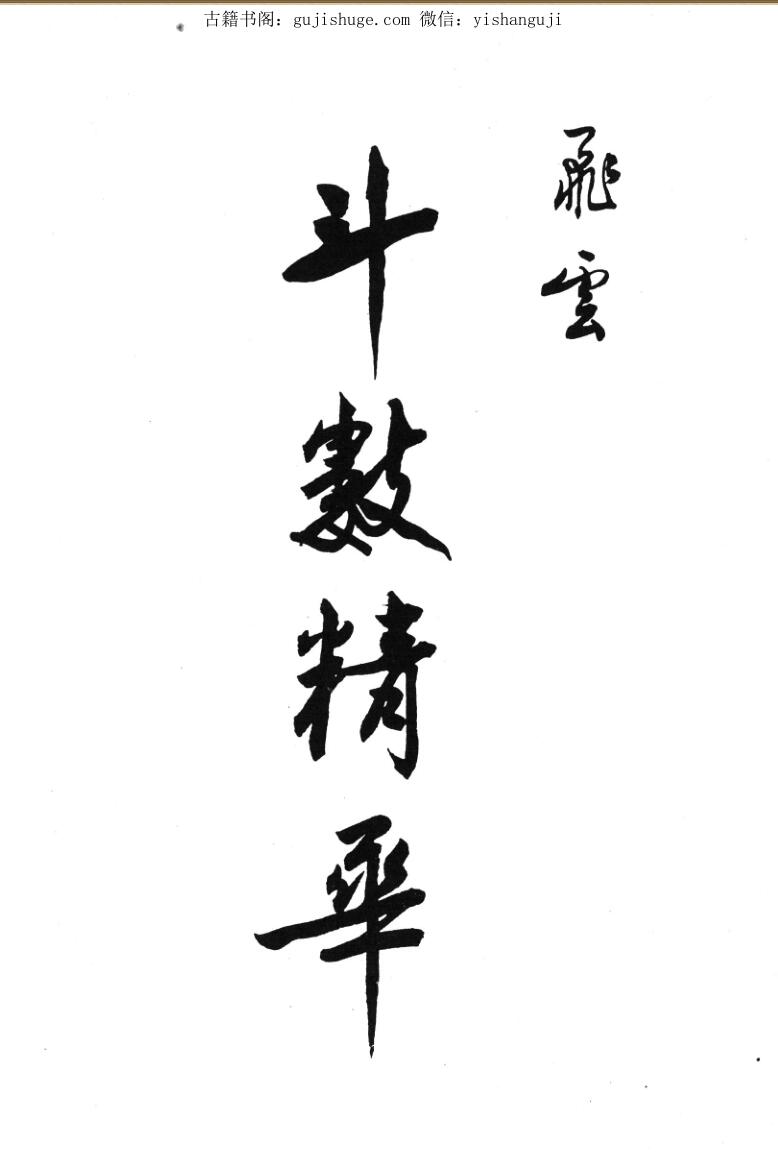 古籍书阁：gujishuge.com 微信：yishanguji
飛雲
斗數精華